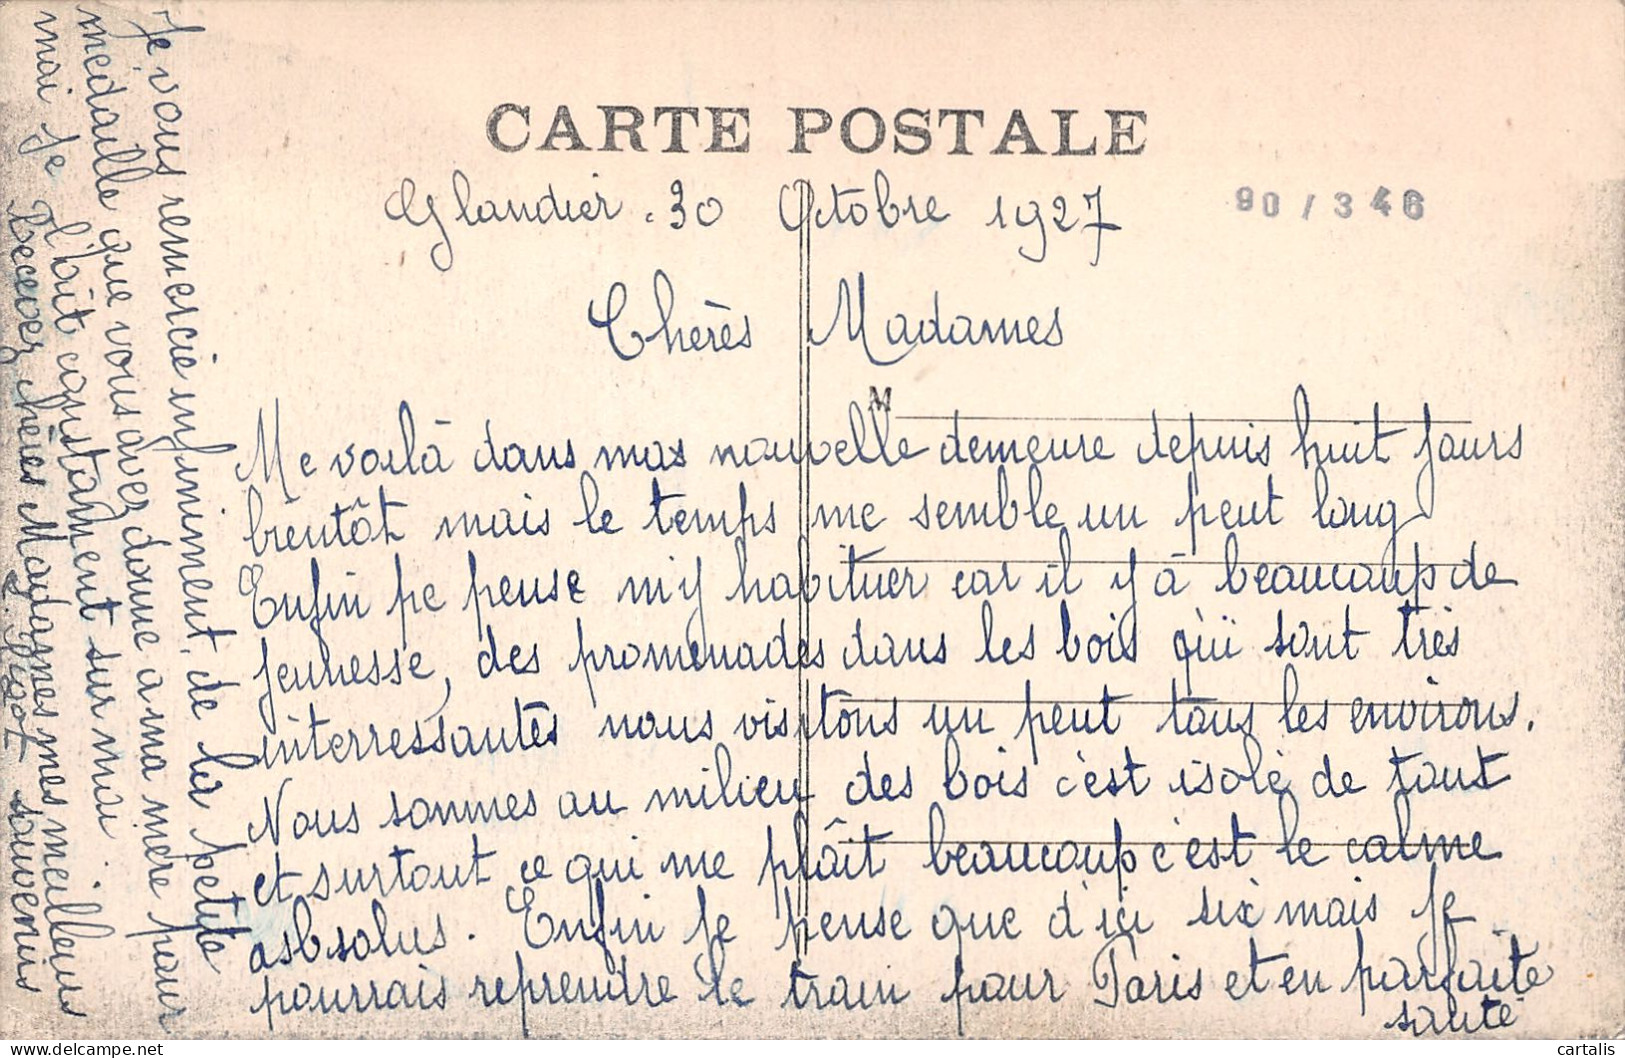 CARTE POSTALE
90 / 346
Glandier. 30 Octobre 1927
Cherès Madames
M
Me voilà dans mas nouvelle demeure depuis huit jours
bientôt mais le temps me semble un peut long
Enfin je pense m'y habituer car il y à beaucoup de
jeunesse, des promenades dans les bois qui sont très
interressantes nous visitons un peut tous les environs.
Nous sommes au milieu des bois c'est isolé de tout
et surtout ce qui me plaît beaucoup c'est le calme
asbsolus. Enfin je pense que d'ici six mois je
pourrais reprendre le train pour Paris et en parfaite
santé
Je vous remercie infiniment de la petite
médaille que vous avez donné a ma mère pour
moi je l'ait constament sur moi.
Recevez chères Madames mes meilleurs
souvenirs
cartalis